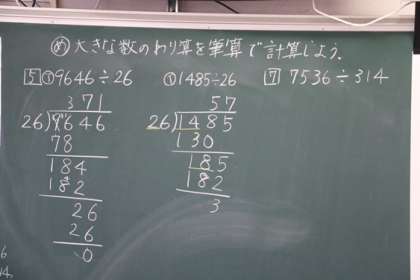 め 大きな数のわり算を筆算で計算しよう。
5 ① 9646÷26
① 1485÷26
7 7536÷314
371
26)9646
78
184
182
26
26
0
57
26)1485
130
185
182
3